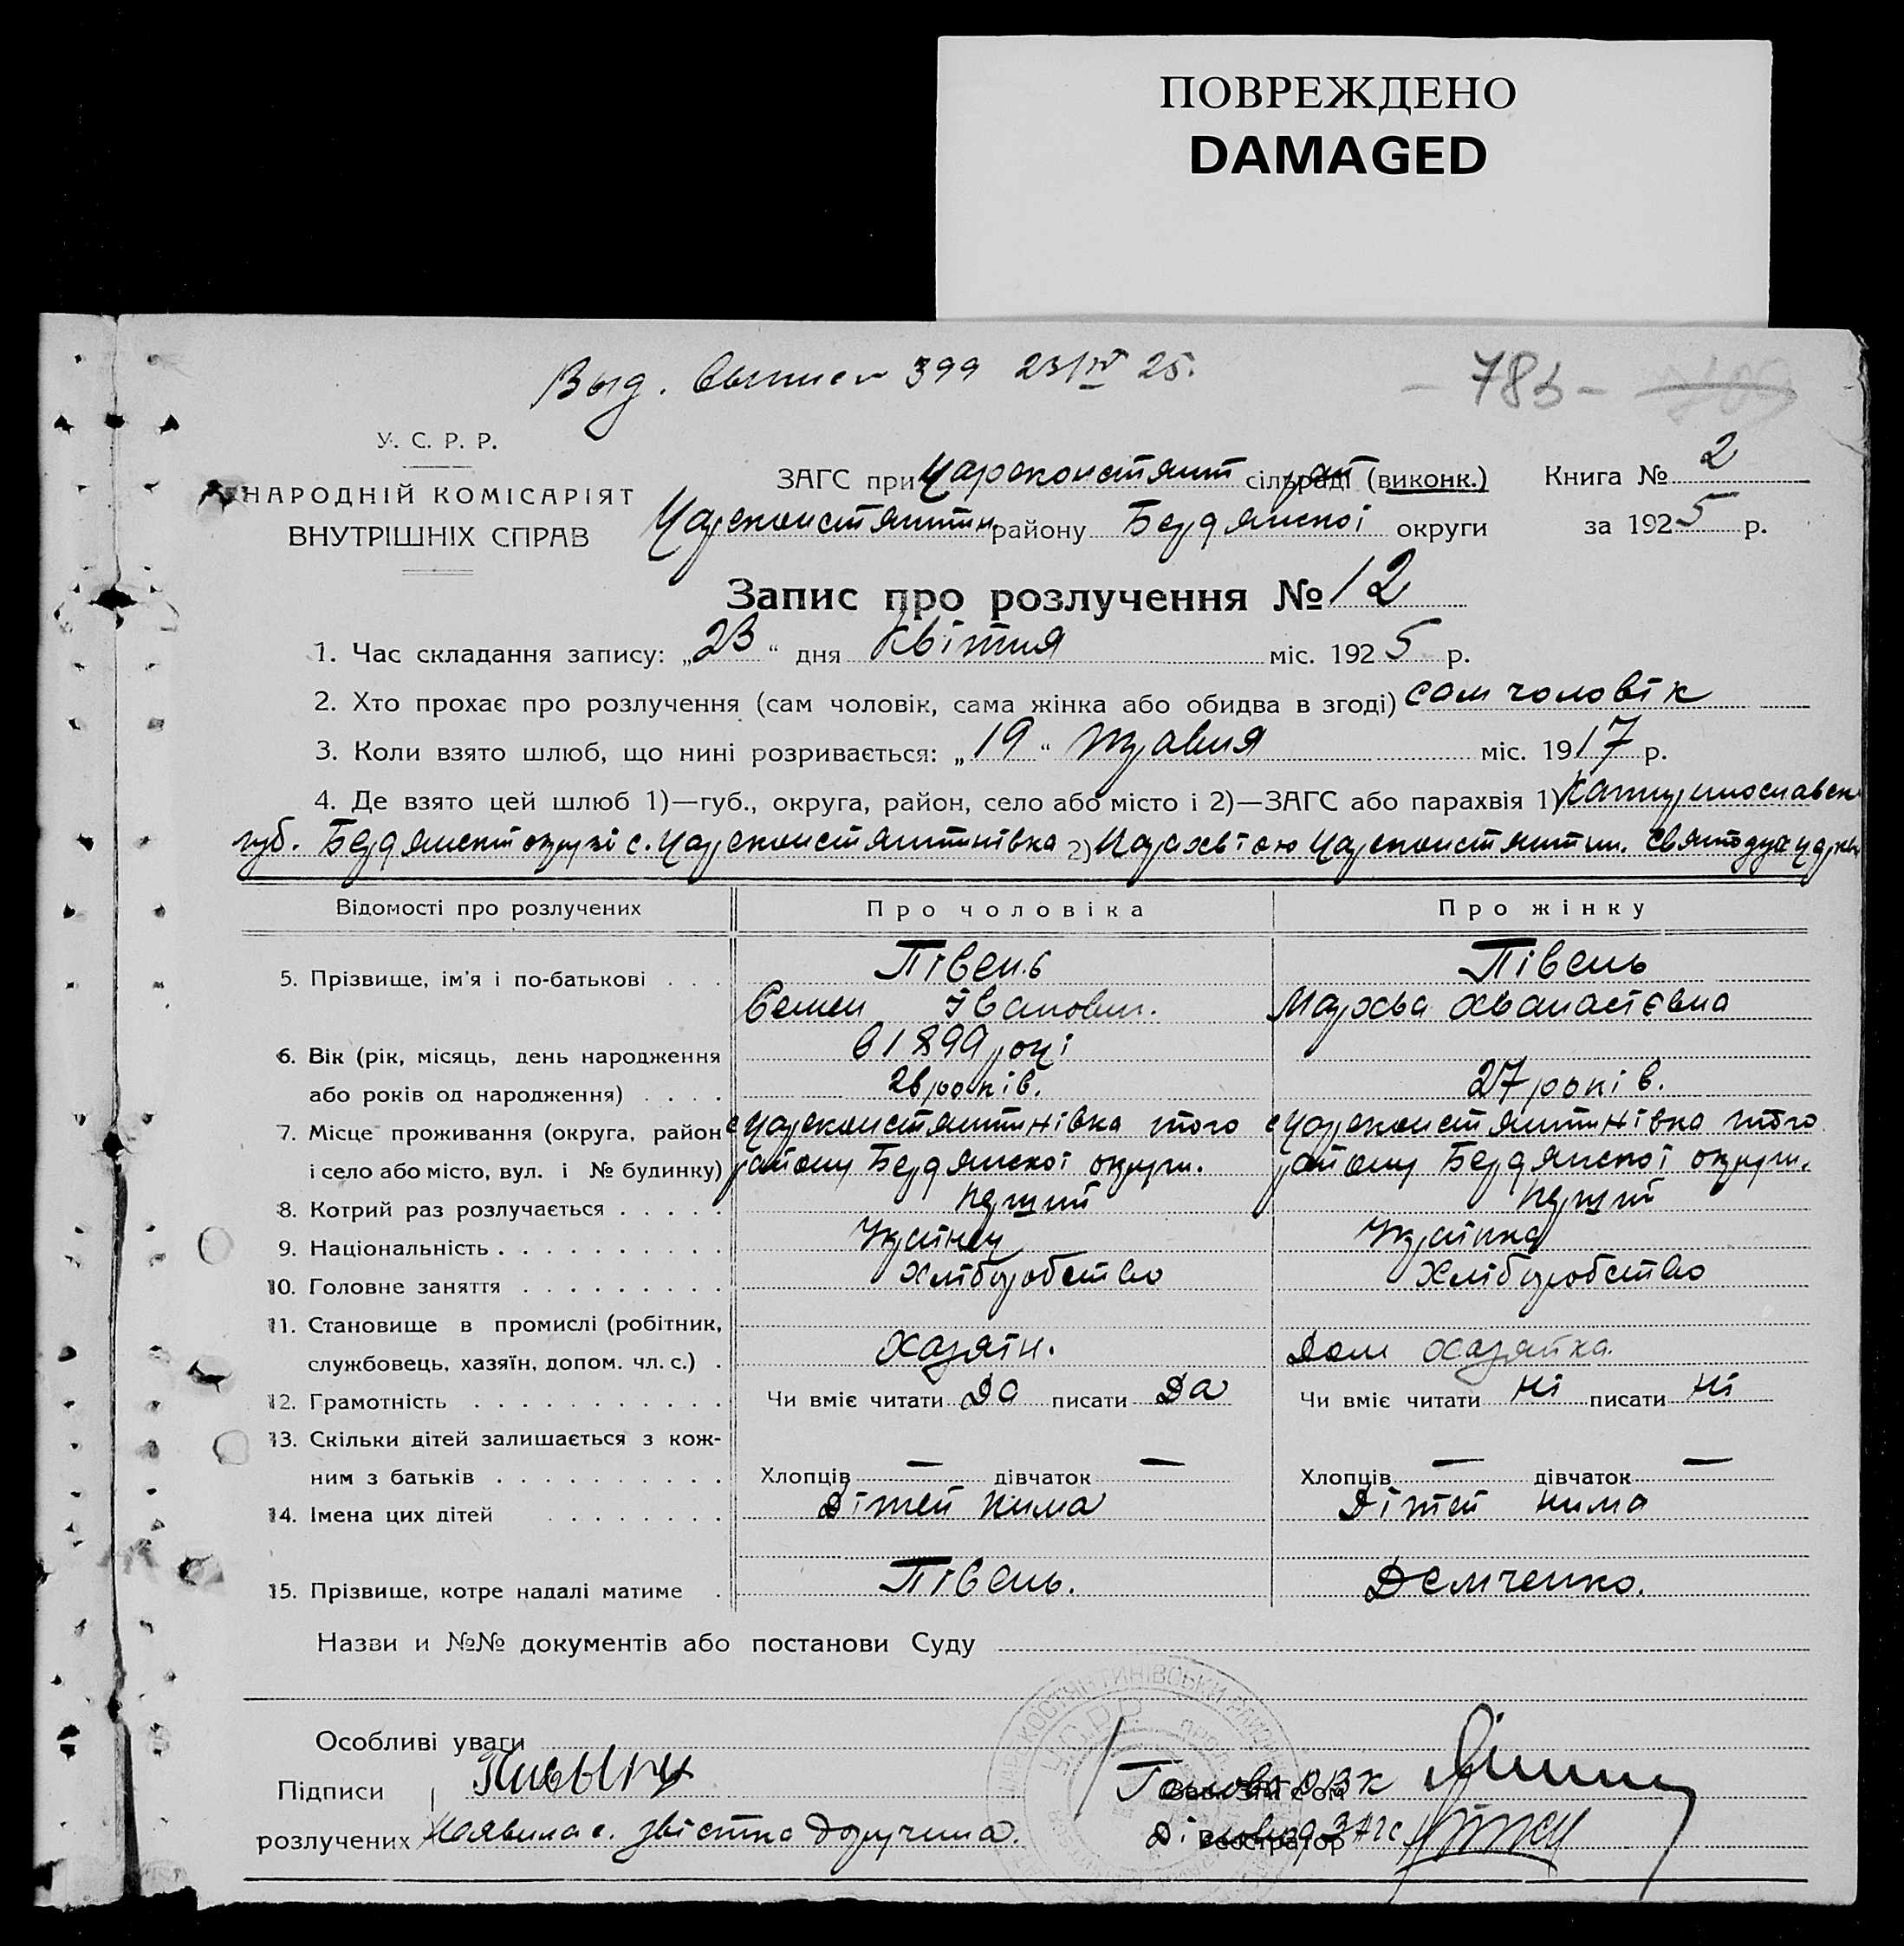 ПОВРЕЖДЕНО
DAMAGED
Выд. выписи 399 23/IV 25.
- 783 -
У. С. Р. Р.
НАРОДНІЙ КОМІСАРІЯТ
ВНУТРІШНІХ СПРАВ
ЗАГС при Цареконстянт сільраді (виконк.) Книга № 2
Цареконстянтин району Бердянської округи за 1925 р.
Запис про розлучення № 12
1. Час складання запису: „23“ дня квітня міс. 1925 р.
2. Хто прохає про розлучення (сам чоловік, сама жінка або обидва в згоді) сам чоловік
3. Коли взято шлюб, що нині розривається: „19“ травня міс. 1917 р.
4. Де взято цей шлюб 1)—губ., округа, район, село або місто і 2)—ЗАГС або парахвія 1)
губ. с. Цареконстянтинівка 2) Парахвією Цареконстянтин.
Відомості про розлучених Про чоловіка Про жінку
5. Прізвище, ім'я і по-батькові . . . Півень Півень
Семен Іванович. Мархва Хванастєвна
6. Вік (рік, місяць, день народження в 1899 році
або років од народження) . . . . 26 років. 27 років.
7. Місце проживання (округа, район с Цареконстянтинівка того с Цареконстянтинівка того
і село або місто, вул. і № будинку) району Бердянської округи. району Бердянської округи.
8. Котрий раз розлучається . . . . . перший перший
9. Національність . . . . . . . . . . Українец Українка
10. Головне заняття . . . . . . . . . Хліборобство Хліборобство
11. Становище в промислі (робітник,
службовець, хазяїн, допом. чл. с.) . Хазяїн. Дом хазяйка.
12. Грамотність . . . . . . . . . . . Чи вміє читати Да писати Да Чи вміє читати Ні писати Ні
13. Скільки дітей залишається з кож-
ним з батьків . . . . . . . . . . Хлопців — дівчаток — Хлопців — дівчаток —
14. Імена цих дітей . . . . . . . . Дітей нима Дітей нима
15. Прізвище, котре надалі матиме . Півень. Демченко.
Назви и №№ документів або постанови Суду
Особливі уваги
Підписи Голова РВК
розлучених звістка доручина. Реєстратор ЗАГС